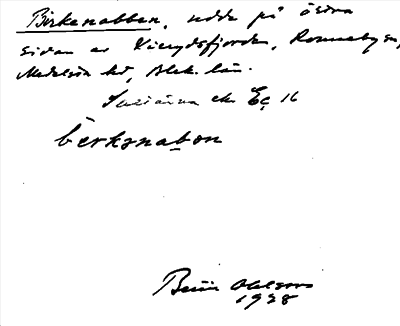 Birkenabben, udde på östra
sidan av Vierydsfjorden, Ronneby sn,
Medelsta hd, Blek. län.
ek. Eç 16
berkənabən
Bengt Ohlsson
1928